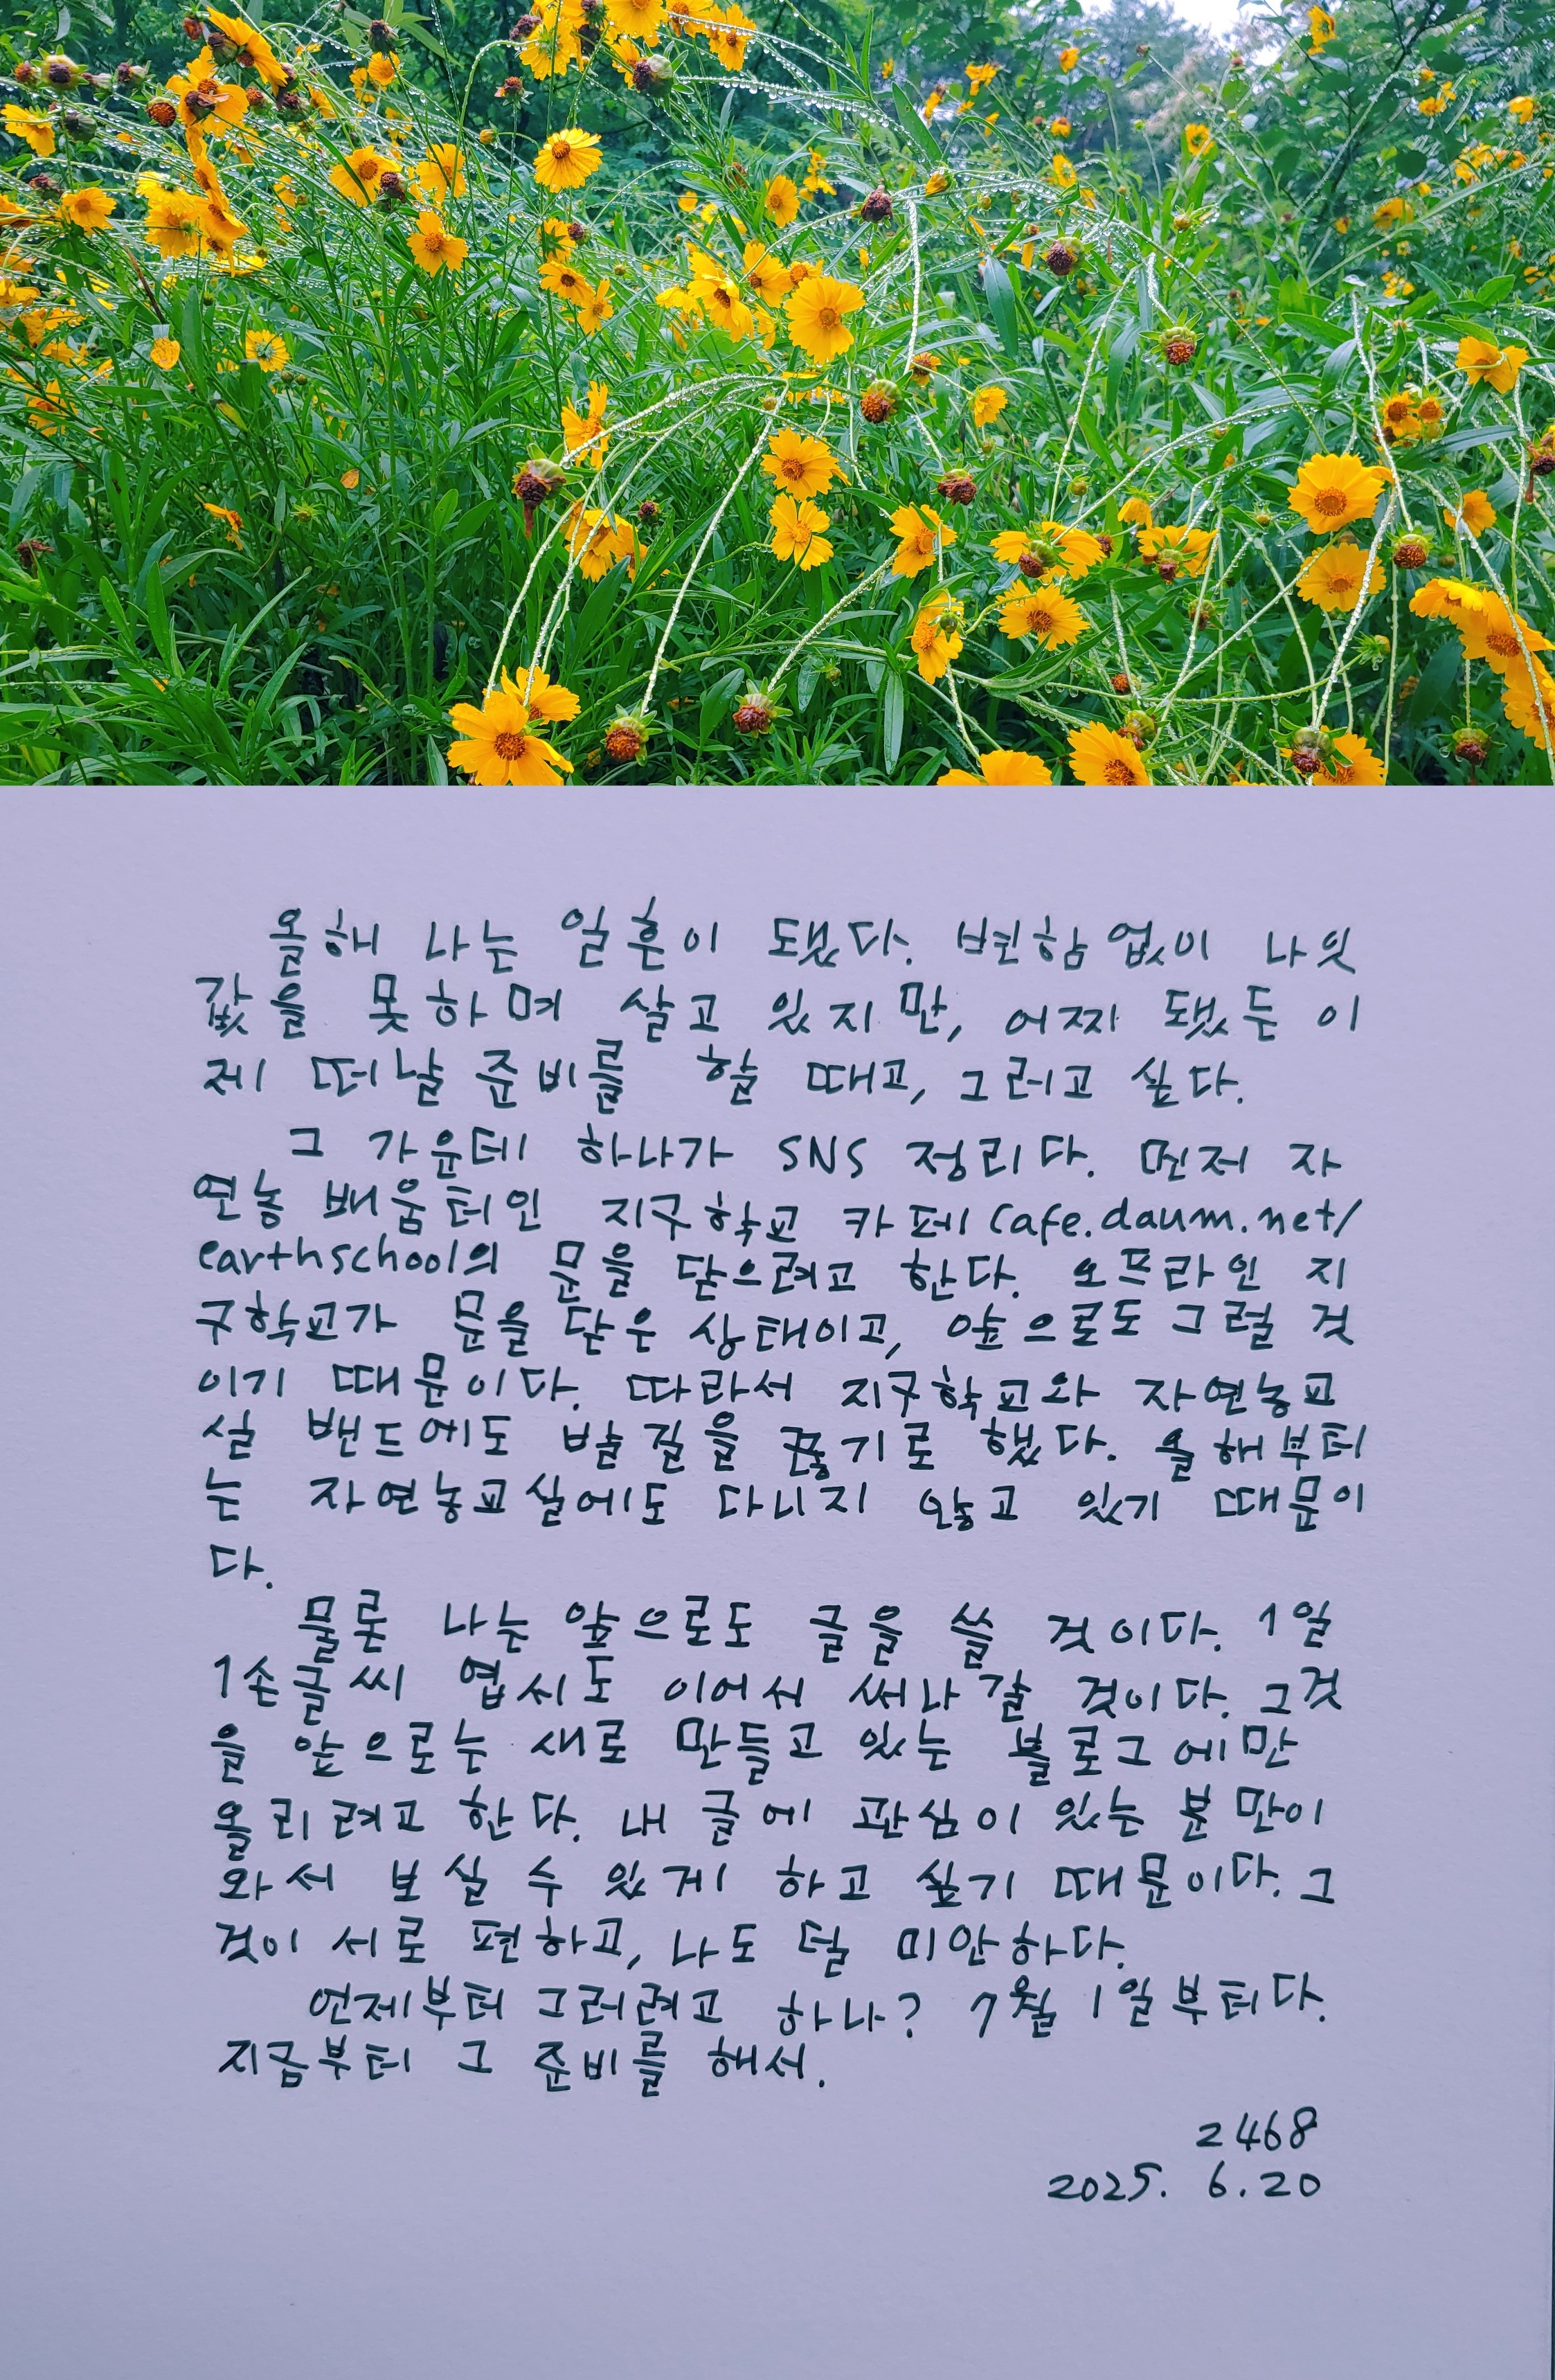 올해 나는 일흔이 됐다. 변함없이 나잇
값을 못하며 살고 있지만, 어찌 됐든 이
제 떠날 준비를 할 때고, 그러고 싶다.
그 가운데 하나가 SNS 정리다. 먼저 자
연농 배움터인 지구학교 카페 cafe.daum.net/
earthschool의 문을 닫으려고 한다. 오프라인 지
구학교가 문을 닫은 상태이고, 앞으로도 그럴 것
이기 때문이다. 따라서 지구학교와 자연농교
실 밴드에도 발길을 끊기로 했다. 올해부터
는 자연농교실에도 다니지 않고 있기 때문이
다.
물론 나는 앞으로도 글을 쓸 것이다. 1일
1손글씨 엽서도 이어서 써나갈 것이다. 그것
을 앞으로는 새로 만들고 있는 블로그에만
올리려고 한다. 내 글에 관심이 있는 분만이
와서 보실 수 있게 하고 싶기 때문이다. 그
것이 서로 편하고, 나도 덜 미안하다.
언제부터 그러려고 하나? 7월 1일부터다.
지금부터 그 준비를 해서.
2468
2025. 6.20